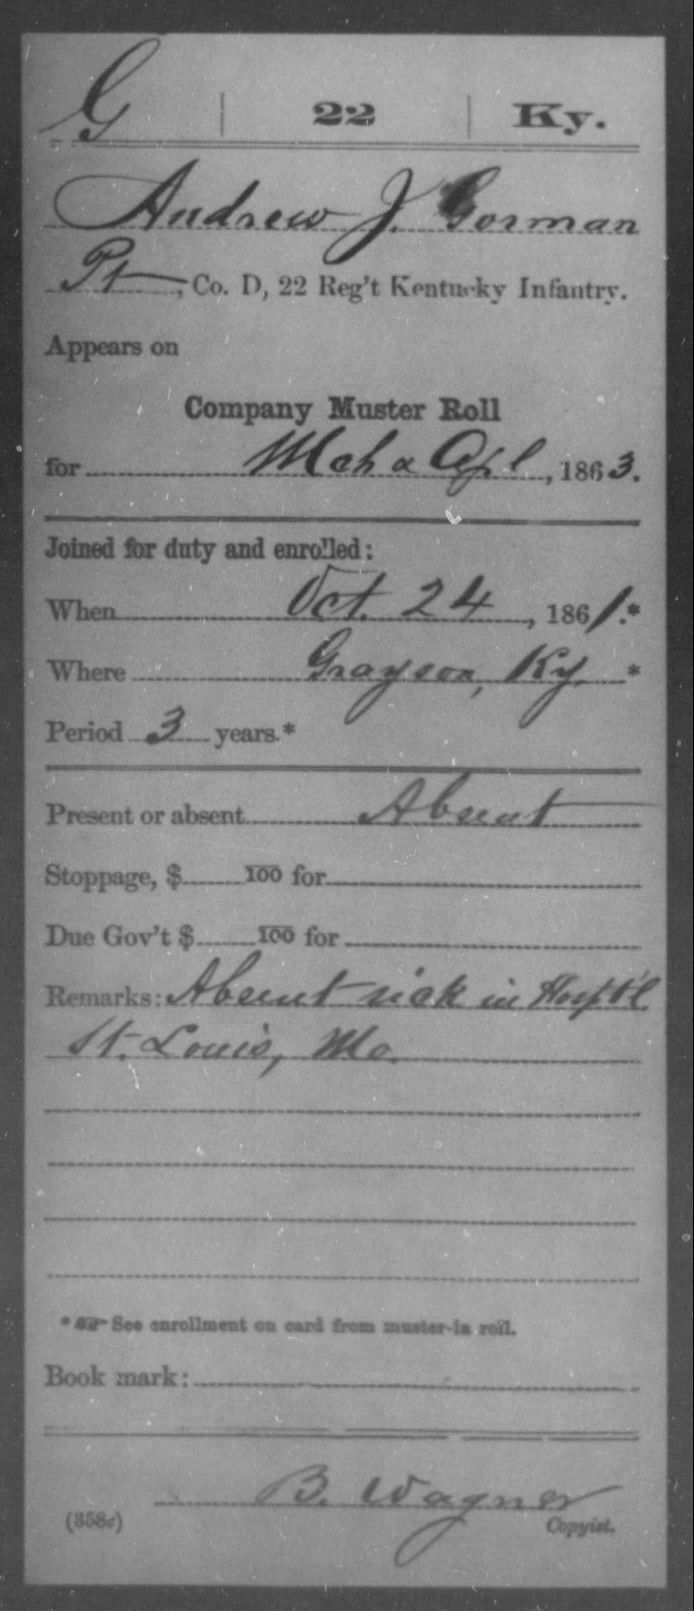 G | 22 | Ky.
Andrew J. Gorman
Pt, Co. D, 22 Reg't Kentucky Infantry.
Appears on
Company Muster Roll
for Mch & Apl, 1863.
Joined for duty and enrolled:
When Oct. 24, 1861.*
Where Grayson, Ky. *
Period 3 years.*
Present or absent Absent
Stoppage, $ 100 for
Due Gov't $ 100 for
Remarks: Absent sick in Hospt'l
St. Louis, Mo.
* See enrollment on card from muster-in roll.
Book mark:
B. Wagner
(358c) Copyist.